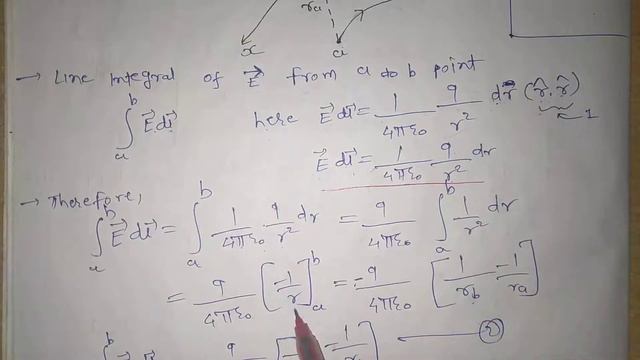 ra
x a
→ Line Integral of E⃗ from a to b point
∫ₐᵇ E⃗ dl⃗ here E⃗ dl⃗ = 1/4πε₀ q/r² dr (r̂.r̂) ← 1
E⃗ dl⃗ = 1/4πε₀ q/r² dr
→ Therefore,
∫ₐᵇ E⃗ dl⃗ = ∫ₐᵇ 1/4πε₀ q/r² dr = q/4πε₀ ∫ₐᵇ 1/r² dr
= q/4πε₀ [-1/r]ₐᵇ = -q/4πε₀ [1/rb - 1/ra]
② ←